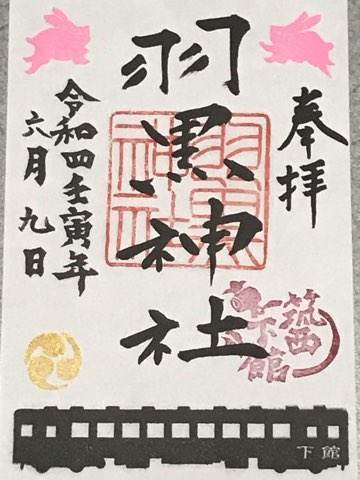 奉拝
羽黒神社
令和四壬寅年
六月九日
羽黒
神社
筑西
下館
下館